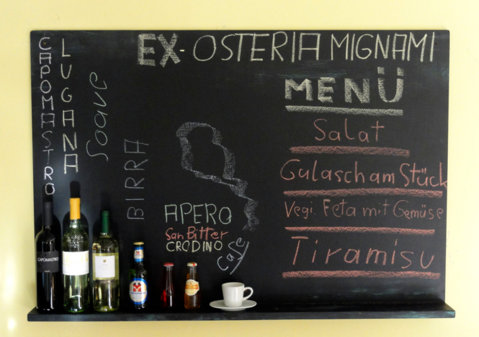 EX-OSTERIA MIGNAMI
CAPOMASTRO
LUGANA
Soave
BIRRA
APERO
San Bitter
CRODINO
Cafe
MENÜ
Salat
Gulasch am Stück
Vegi. Feta mit Gemüse
Tiramisu
CAPOMASTRO